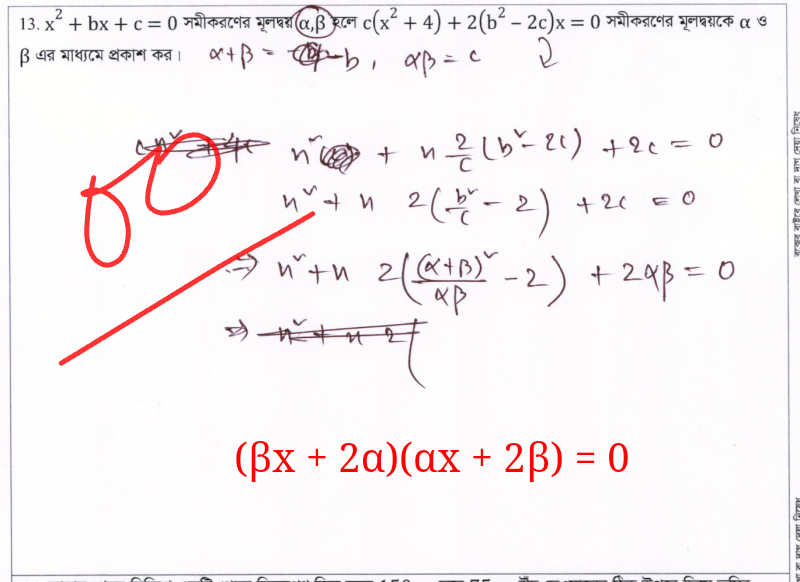 13. x² + bx + c = 0 সমীকরণের মূলদ্বয় α,β হলে c(x² + 4) + 2(b² − 2c)x = 0 সমীকরণের মূলদ্বয়কে α ও
β এর মাধ্যমে প্রকাশ কর।
α+β = -b, αβ = c
x² + x 2/c (b² - 2c) + 2c = 0
x² + x 2(b²/c - 2) + 2c = 0
⇒ x² + x 2((α+β)²/αβ - 2) + 2αβ = 0
⇒ x² + x 2(
(βx + 2α)(αx + 2β) = 0